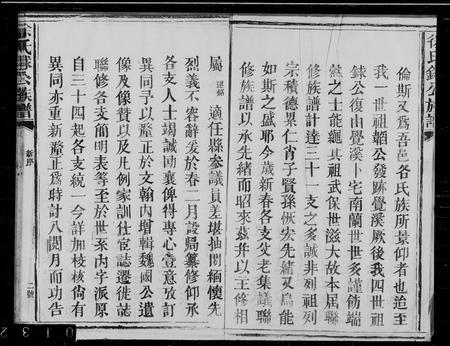 徐氏錄公族譜
倫斯又爲吾邑各氏族所景仰者也迨至
我一世祖韜公發跡覺溪厥後我四世祖
錄公復由覺溪卜宅南蘭世世多謹飭端
慤之士能繩其祖武保世滋大故本屆聯
修族譜計達三十一支之多誠非列祖列
宗積德累仁肖子賢孫恢宏先緒又烏能
如斯之盛耶今歲新春各支父老集議聯
修族譜以承先緒而昭來茲并以主修相
屬 適任縣參議員差堪抽閒緬懷先
烈義不容辭爰於春二月設局纂修仰承
各支人士竭誠勷襄俾得專心壹意攷訂
異同予以釐正於文翰內增輯魏國公遺
像及像贊以及凡例家訓仕宦誌遷徙誌
聯修各支簡明表等至於世系內字派原
自三十四起各支統一今詳加校核倘有
異同亦重新釐正爲時計八閱月而功告
新序
二號